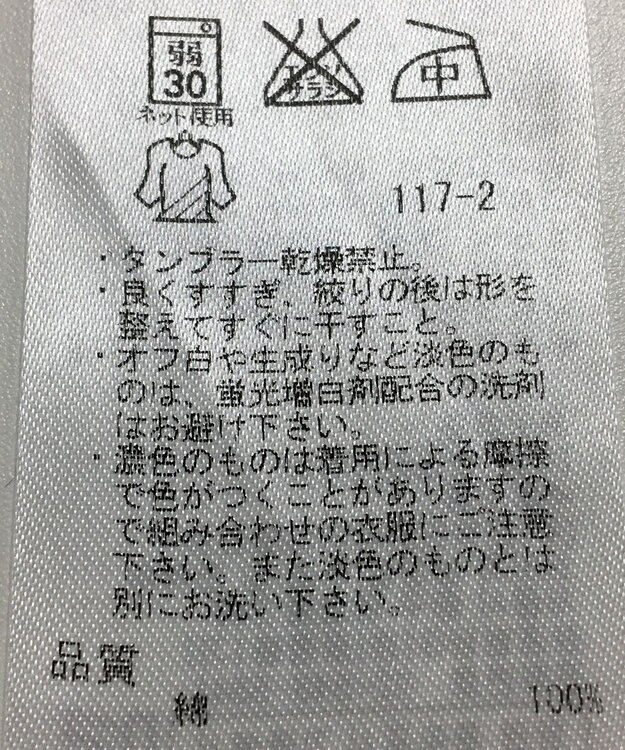 弱
30
ネット使用
エンソ
サラシ
中
117-2
・タンブラー乾燥禁止。
・良くすすぎ、絞りの後は形を
整えてすぐに干すこと。
・オフ白や生成りなど淡色のも
のは、蛍光増白剤配合の洗剤
はお避け下さい。
・濃色のものは着用による摩擦
で色がつくことがありますの
で組み合わせの衣服にご注意
下さい。また淡色のものとは
別にお洗い下さい。
品質
綿 100%